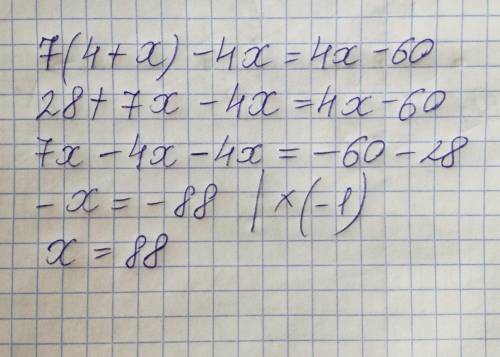 7(4+x)-4x=4x-60
28+7x-4x=4x-60
7x-4x-4x=-60-28
-x=-88 |×(-1)
x=88